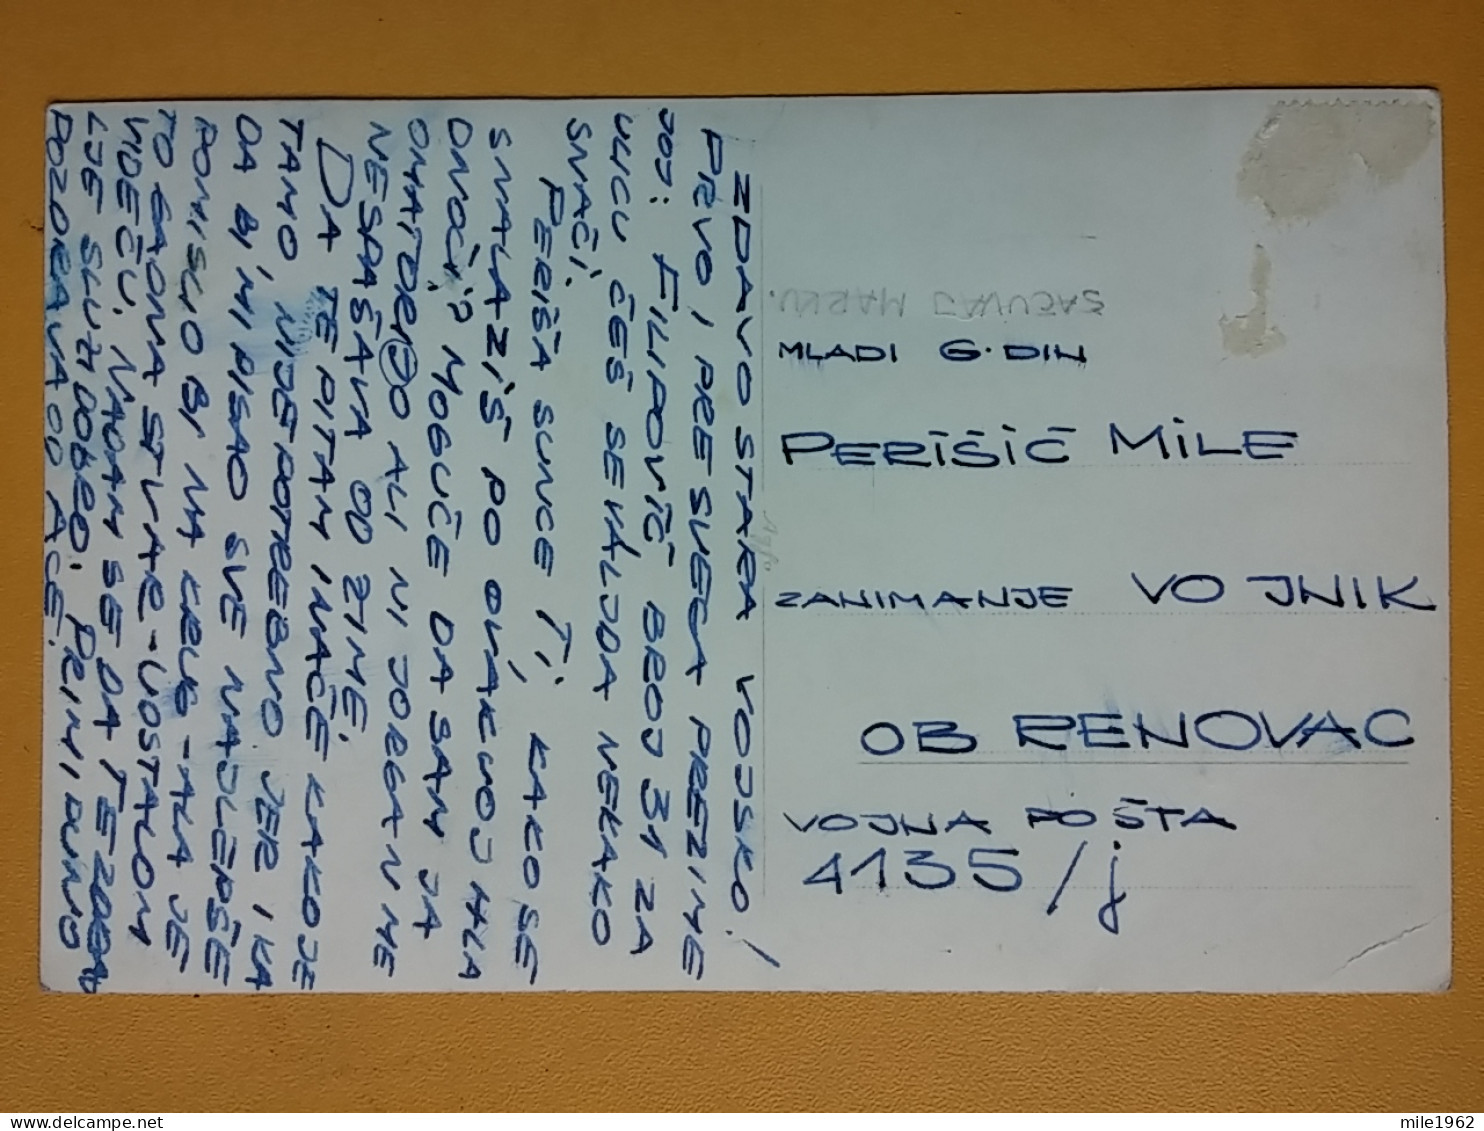 ZDRAVO STARA VOJSKO!
PRVO, PRE SVEGA PREZIME
JOJ: FILIPOVIČ BROJ 31 ZA
ULICU ČEŠ SE VALJDA NEKAKO
SNAČI.
PERIŠA SUNCE TI, KAKO SE
SNALAZIŠ PO OVAKVOJ HLA
DNOČI? MOGUČE DA SAM JA
OMATORIO ALI NI JORGAN ME
NESPAŠAVA OD ZIME.
DA TE PITAM INAČE KAKO JE
TAMO, NIJE POTREBNO JER I KA
DA BI MI PISAO SVE NAJLEPŠE
POMISLIO BI NA KRUG - ALA JE
TO GADNA STVAR - UOSTALOM
VIDEČU. NADAM SE DA TE ZDRAV
LJE SLUŽI DOBRO. PRIMI DIVNO
POZDRAVA OD ACE.
SAČUVAJ MARKU.
MLADI G. DIN
PERIŠIČ MILE
ZANIMANJE VOJNIK
OB RENOVAC
VOJNA POŠTA
4135/j
mile1962